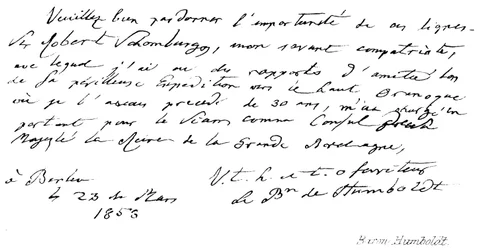 Veuillez bien pardonner l'importunité de ces lignes.
Sir Robert Schomburgk, mon savant compatriote,
avec lequel j'ai eu des rapports d'amitié lors
de sa périlleuse Expedition vers le haut Orenoque
où je l'avais precedé de 30 ans, m'a chargé en
partant pour le Siam comme Consul de
Majesté la Reine de la Grande Bretagne,
à Berlin
V. t. h. et t. o
le Bn de Humboldt
ce 23 de Mars
1858
Humboldt.